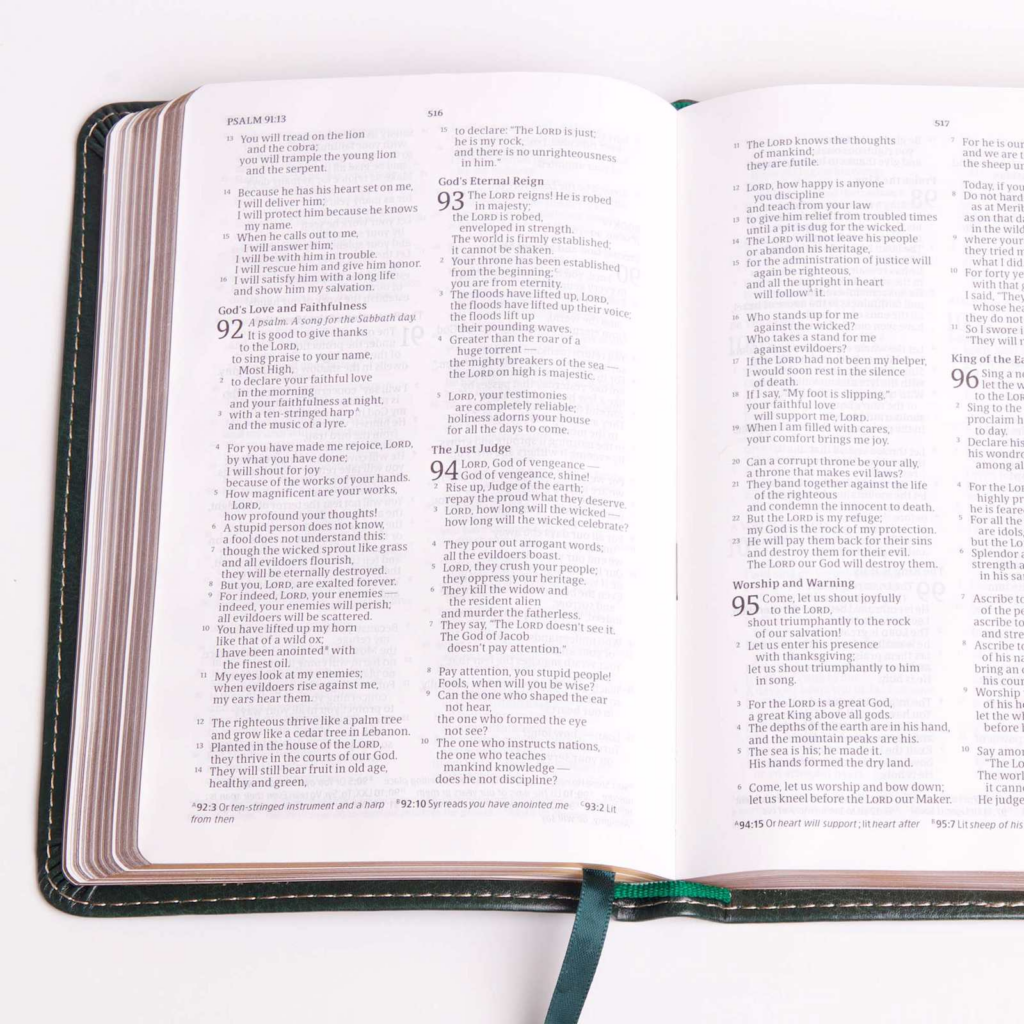 PSALM 91:13
516
13 You will tread on the lion
and the cobra;
you will trample the young lion
and the serpent.
14 Because he has his heart set on me,
I will deliver him;
I will protect him because he knows
my name.
15 When he calls out to me,
I will answer him;
I will be with him in trouble.
I will rescue him and give him honor.
16 I will satisfy him with a long life
and show him my salvation.
God's Love and Faithfulness
92 A psalm. A song for the Sabbath day.
It is good to give thanks
to the LORD,
to sing praise to your name,
Most High,
2 to declare your faithful love
in the morning
and your faithfulness at night,
3 with a ten-stringed harpᴬ
and the music of a lyre.
4 For you have made me rejoice, LORD,
by what you have done;
I will shout for joy
because of the works of your hands.
5 How magnificent are your works,
LORD,
how profound your thoughts!
6 A stupid person does not know,
a fool does not understand this:
7 though the wicked sprout like grass
and all evildoers flourish,
they will be eternally destroyed.
8 But you, LORD, are exalted forever.
9 For indeed, LORD, your enemies —
indeed, your enemies will perish;
all evildoers will be scattered.
10 You have lifted up my horn
like that of a wild ox;
I have been anointedᴮ with
the finest oil.
11 My eyes look at my enemies;
when evildoers rise against me,
my ears hear them.
12 The righteous thrive like a palm tree
and grow like a cedar tree in Lebanon.
13 Planted in the house of the LORD,
they thrive in the courts of our God.
14 They will still bear fruit in old age,
healthy and green,
15 to declare: "The LORD is just;
he is my rock,
and there is no unrighteousness
in him."
God's Eternal Reign
93 The LORD reigns! He is robed
in majesty;
the LORD is robed,
enveloped in strength.
The world is firmly established;
it cannot be shaken.
2 Your throne has been established
from the beginning;ᶜ
you are from eternity.
3 The floods have lifted up, LORD,
the floods have lifted up their voice;
the floods lift up
their pounding waves.
4 Greater than the roar of a
huge torrent —
the mighty breakers of the sea —
the LORD on high is majestic.
5 LORD, your testimonies
are completely reliable;
holiness adorns your house
for all the days to come.
The Just Judge
94 LORD, God of vengeance —
God of vengeance, shine!
2 Rise up, Judge of the earth;
repay the proud what they deserve.
3 LORD, how long will the wicked —
how long will the wicked celebrate?
4 They pour out arrogant words;
all the evildoers boast.
5 LORD, they crush your people;
they oppress your heritage.
6 They kill the widow and
the resident alien
and murder the fatherless.
7 They say, "The LORD doesn't see it.
The God of Jacob
doesn't pay attention."
8 Pay attention, you stupid people!
Fools, when will you be wise?
9 Can the one who shaped the ear
not hear,
the one who formed the eye
not see?
10 The one who instructs nations,
the one who teaches
mankind knowledge —
does he not discipline?
ᴬ92:3 Or ten-stringed instrument and a harp ᴮ92:10 Syr reads you have anointed me ᶜ93:2 Lit
from then
517
11 The LORD knows the thoughts
of mankind;
they are futile.
12 LORD, how happy is anyone
you discipline
and teach from your law
13 to give him relief from troubled times
until a pit is dug for the wicked.
14 The LORD will not leave his people
or abandon his heritage,
15 for the administration of justice will
again be righteous,
and all the upright in heart
will followᴬ it.
16 Who stands up for me
against the wicked?
Who takes a stand for me
against evildoers?
17 If the LORD had not been my helper,
I would soon rest in the silence
of death.
18 If I say, "My foot is slipping,"
your faithful love
will support me, LORD.
19 When I am filled with cares,
your comfort brings me joy.
20 Can a corrupt throne be your ally,
a throne that makes evil laws?
21 They band together against the life
of the righteous
and condemn the innocent to death.
22 But the LORD is my refuge;
my God is the rock of my protection.
23 He will pay them back for their sins
and destroy them for their evil.
The LORD our God will destroy them.
Worship and Warning
95 Come, let us shout joyfully
to the LORD,
shout triumphantly to the rock
of our salvation!
2 Let us enter his presence
with thanksgiving;
let us shout triumphantly to him
in song.
3 For the LORD is a great God,
a great King above all gods.
4 The depths of the earth are in his hand,
and the mountain peaks are his.
5 The sea is his; he made it.
His hands formed the dry land.
6 Come, let us worship and bow down;
let us kneel before the LORD our Maker.
7 For he is our
and we are t
the sheep un
Today, if you
8 Do not hard
as at Merib
as on that da
in the wild
9 where your
they tried m
what I did
10 For forty ye
with that
I said, "They
whose hea
they do not
11 So I swore i
"They will
King of the Ea
96 Sing a ne
let the w
to the LO
2 Sing to the
proclaim h
to day.
3 Declare his
his wondro
among al
4 For the LO
highly pr
he is feare
5 For all the
are idols,
but the Lo
6 Splendor a
strength a
in his sa
7 Ascribe to
of the pe
ascribe to
and stre
8 Ascribe to
of his na
bring an
his cour
9 Worship
of his h
let the w
before
10 Say amon
"The Lo
The worl
it cann
He judge
ᴬ94:15 Or heart will support; lit heart after ᴮ95:7 Lit sheep of his